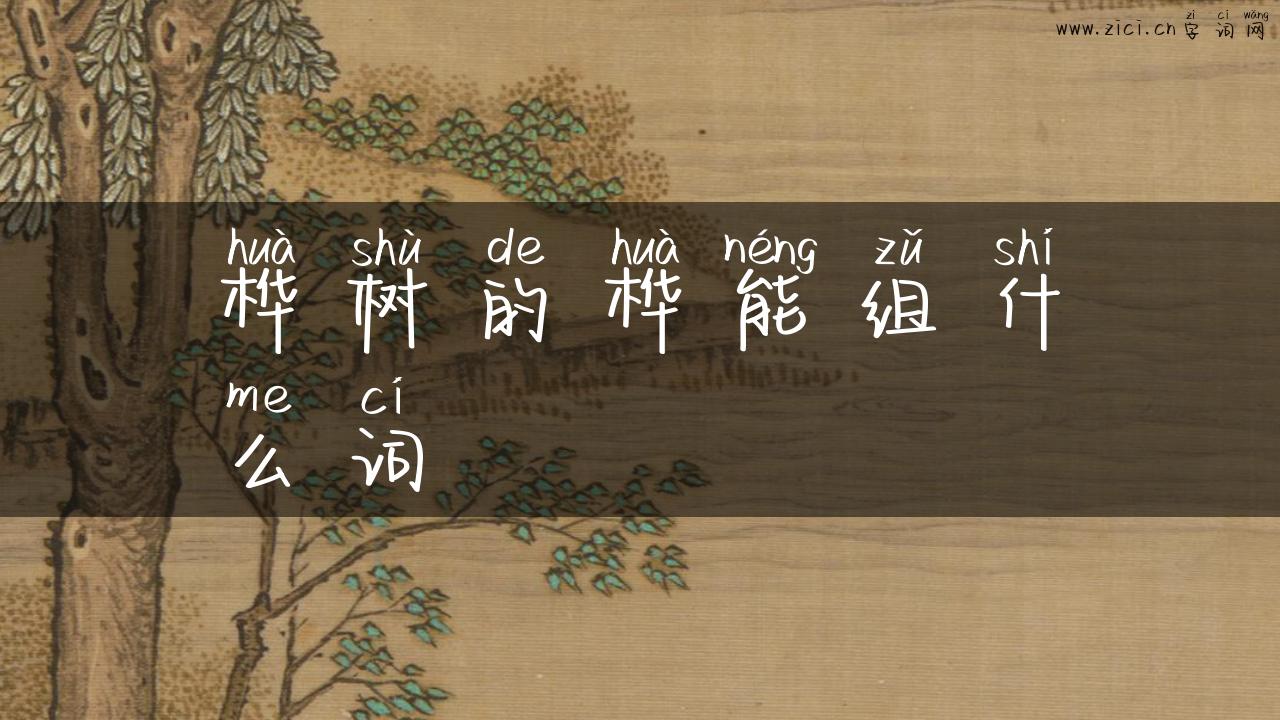 zì cí wǎng
www.zici.cn 字词网
huà shù de huà néng zǔ shí
桦树的桦能组什
me cí
么词